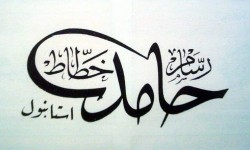 رسام
حامد
خطاط
استانبول